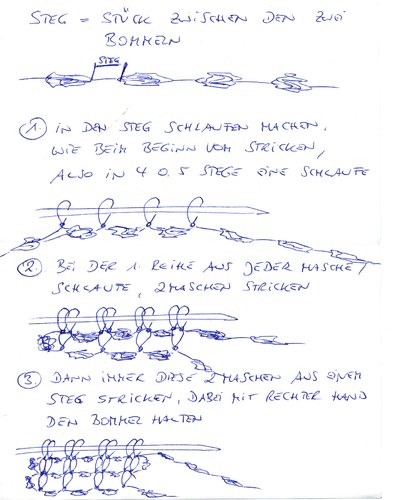 STEG = STÜCK ZWISCHEN DEN ZWEI
BOMMELN
STEG
1. IN DEN STEG SCHLAUFEN MACHEN,
WIE BEIM BEGINN VOM STRICKEN,
ALSO IN 4 O. 5 STEGE EINE SCHLAUFE
2. BEI DER 1. REIHE AUS JEDER MASCHE/
SCHLAUFE, 2 MASCHEN STRICKEN
3. DANN IMMER DIESE 2 MASCHEN AUS EINEM
STEG STRICKEN, DABEI MIT RECHTER HAND
DEN BOMMEL HALTEN